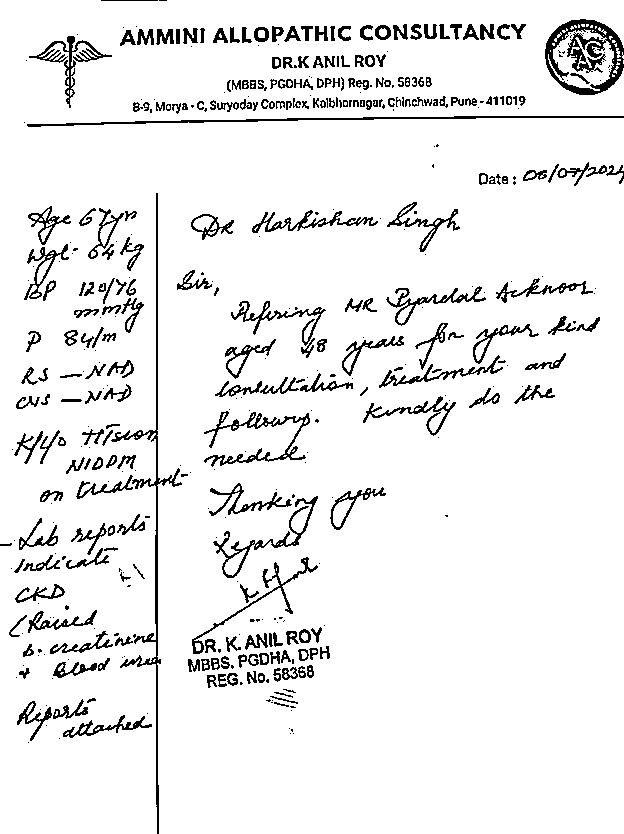 AMMINI ALLOPATHIC CONSULTANCY
DR.K ANIL ROY
(MBBS, PGDHA, DPH) Reg. No. 58368
B-9, Morya - C, Suryoday Complex, Kalbhornagar, Chinchwad, Pune - 411019
Date : 06/07/2024
Age 67yrs
Wgt- 64 kg
BP 120/76
mmHg
P 84/m
RS — NAD
CNS — NAD
K/c/o HTsion
NIDDM
on treatment
- Lab reports
indicate
CKD
(Raised
s. creatinine
+ Blood urea
Reports
attached
Dr Harkishan Singh
Sir,
Refering MR Pyaralal Acknoor
aged 48 years for your kind
consultation, treatment and
followup. Kindly do the
needed
Thanking you
Regards
DR. K. ANIL ROY
MBBS. PGDHA, DPH
REG. No. 58368